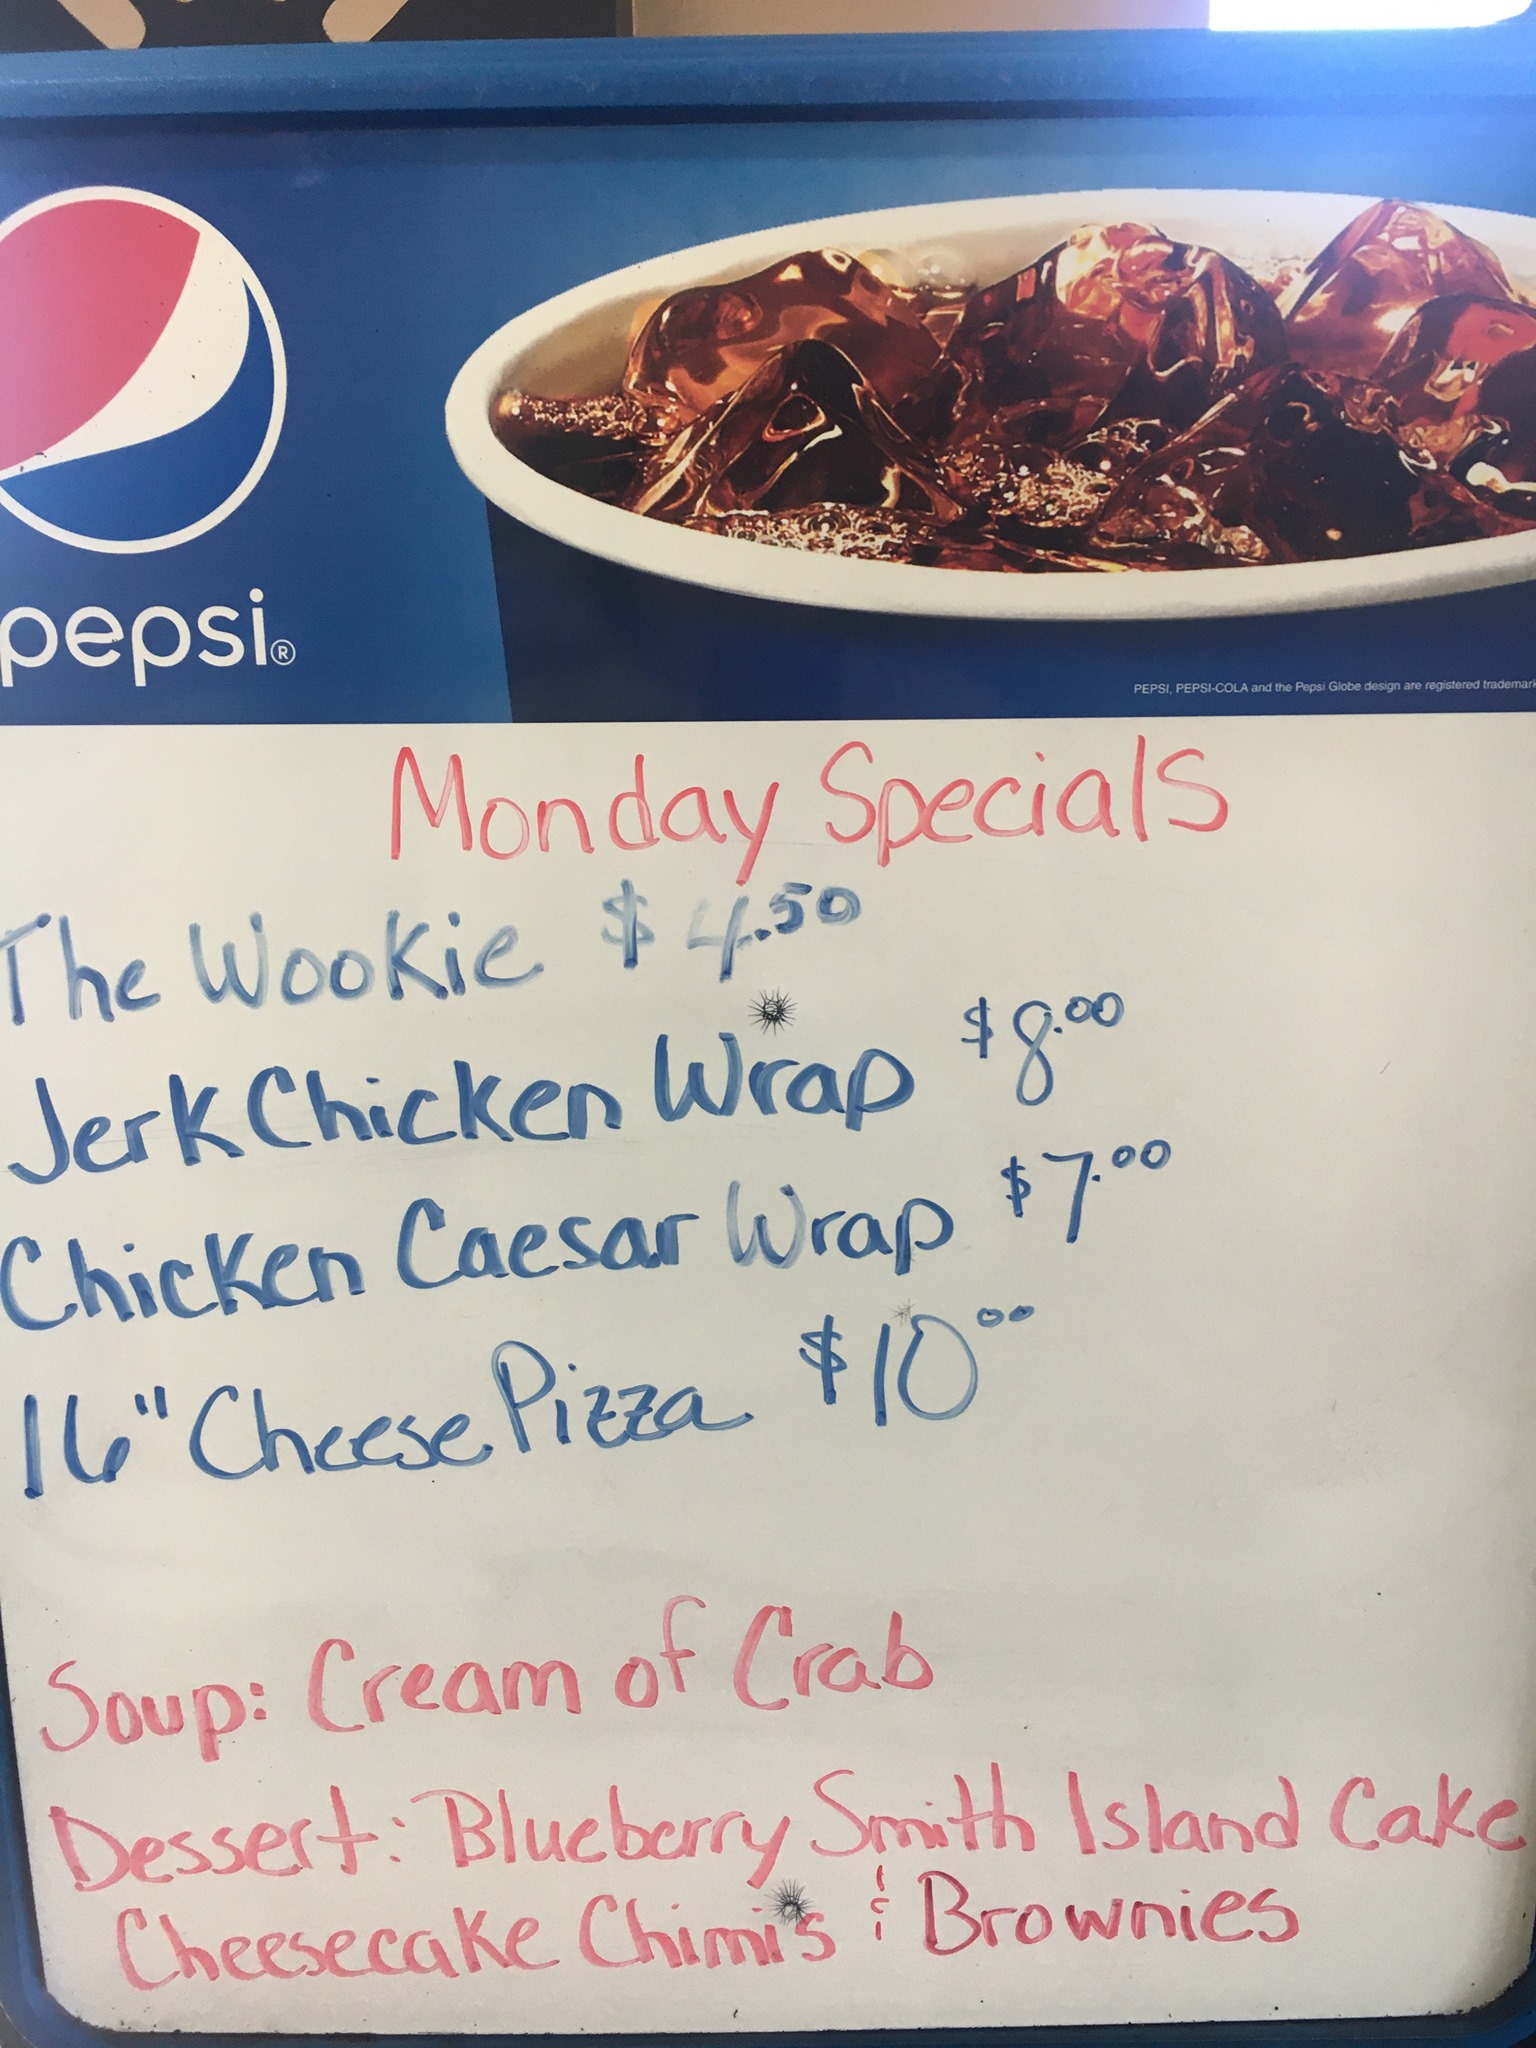 pepsi®
PEPSI, PEPSI-COLA and the Pepsi Globe design are registered trademark
Monday Specials
The Wookie $4.50
Jerk Chicken Wrap $8.00
Chicken Caesar Wrap $7.00
16" Cheese Pizza $10 00
Soup: Cream of Crab
Dessert: Blueberry Smith Island Cake
Cheesecake Chimi's & Brownies